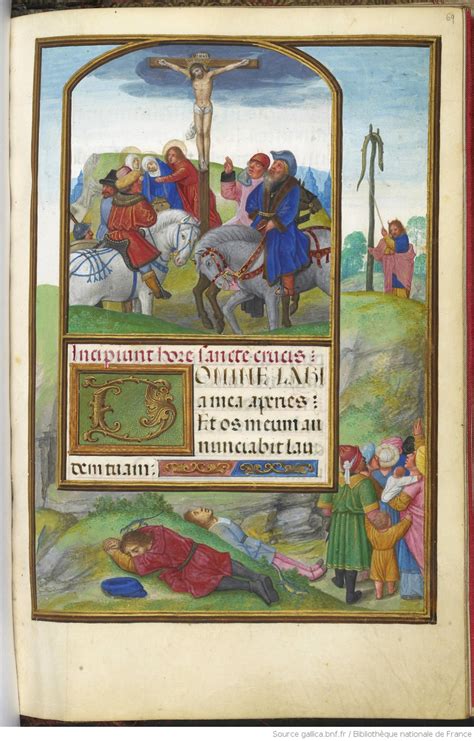 69
Incipiunt hore sancte crucis:
DOMINE LABI
a mea aperies:
Et os meum an
nunciabit lau
dem tuam:
Source gallica.bnf.fr / Bibliothèque nationale de France